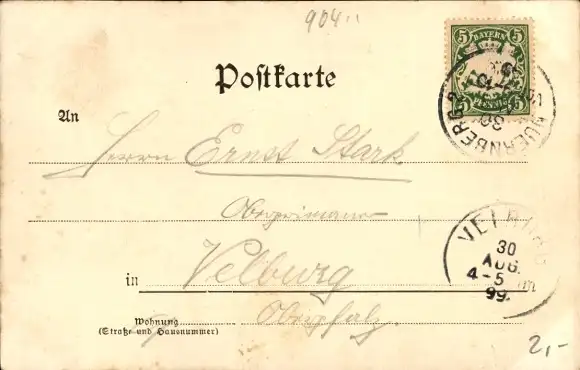 904..
5 BAYERN 5
5 PFENNIG 5
NUERNBERG 2
30
Postkarte
An
Herrn Ernst Stark
Oberprimaner
in Velburg
Oberpfalz
Wohnung
(Straße und Hausnummer)
VELBURG
30
AUG.
4-5
99.
2,-